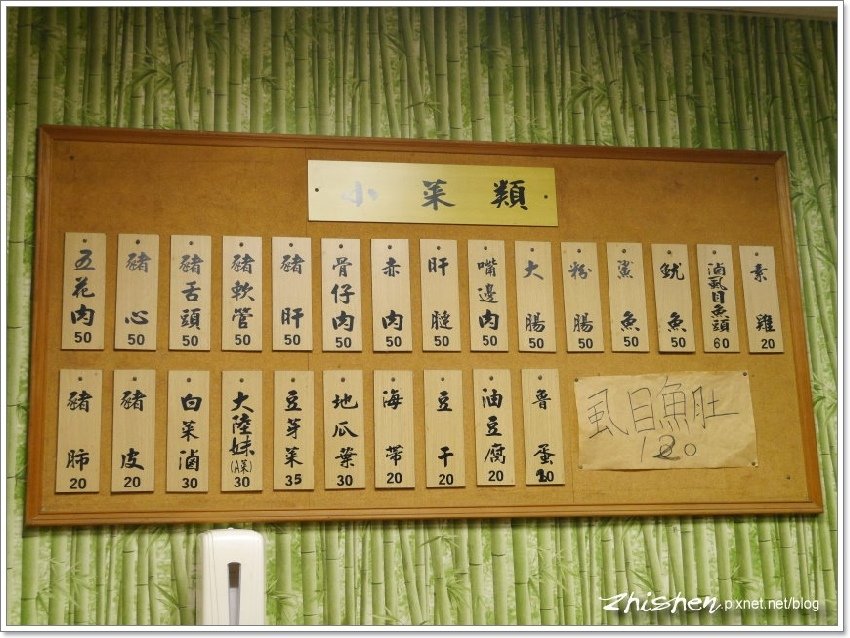 小菜類
五花肉 50
豬心 50
豬舌頭 50
豬軟管 50
豬肝 50
骨仔肉 50
赤肉 50
肝腱 50
嘴邊肉 50
大腸 50
粉腸 50
鯊魚 50
魷魚 50
滷虱目魚頭 60
素雞 20
豬肺 20
豬皮 20
白菜滷 30
大陸妹(A菜) 30
豆芽菜 35
地瓜葉 30
海帶 20
豆干 20
油豆腐 20
魯蛋 10
虱目魚肚
120
zhishen.pixnet.net/blog